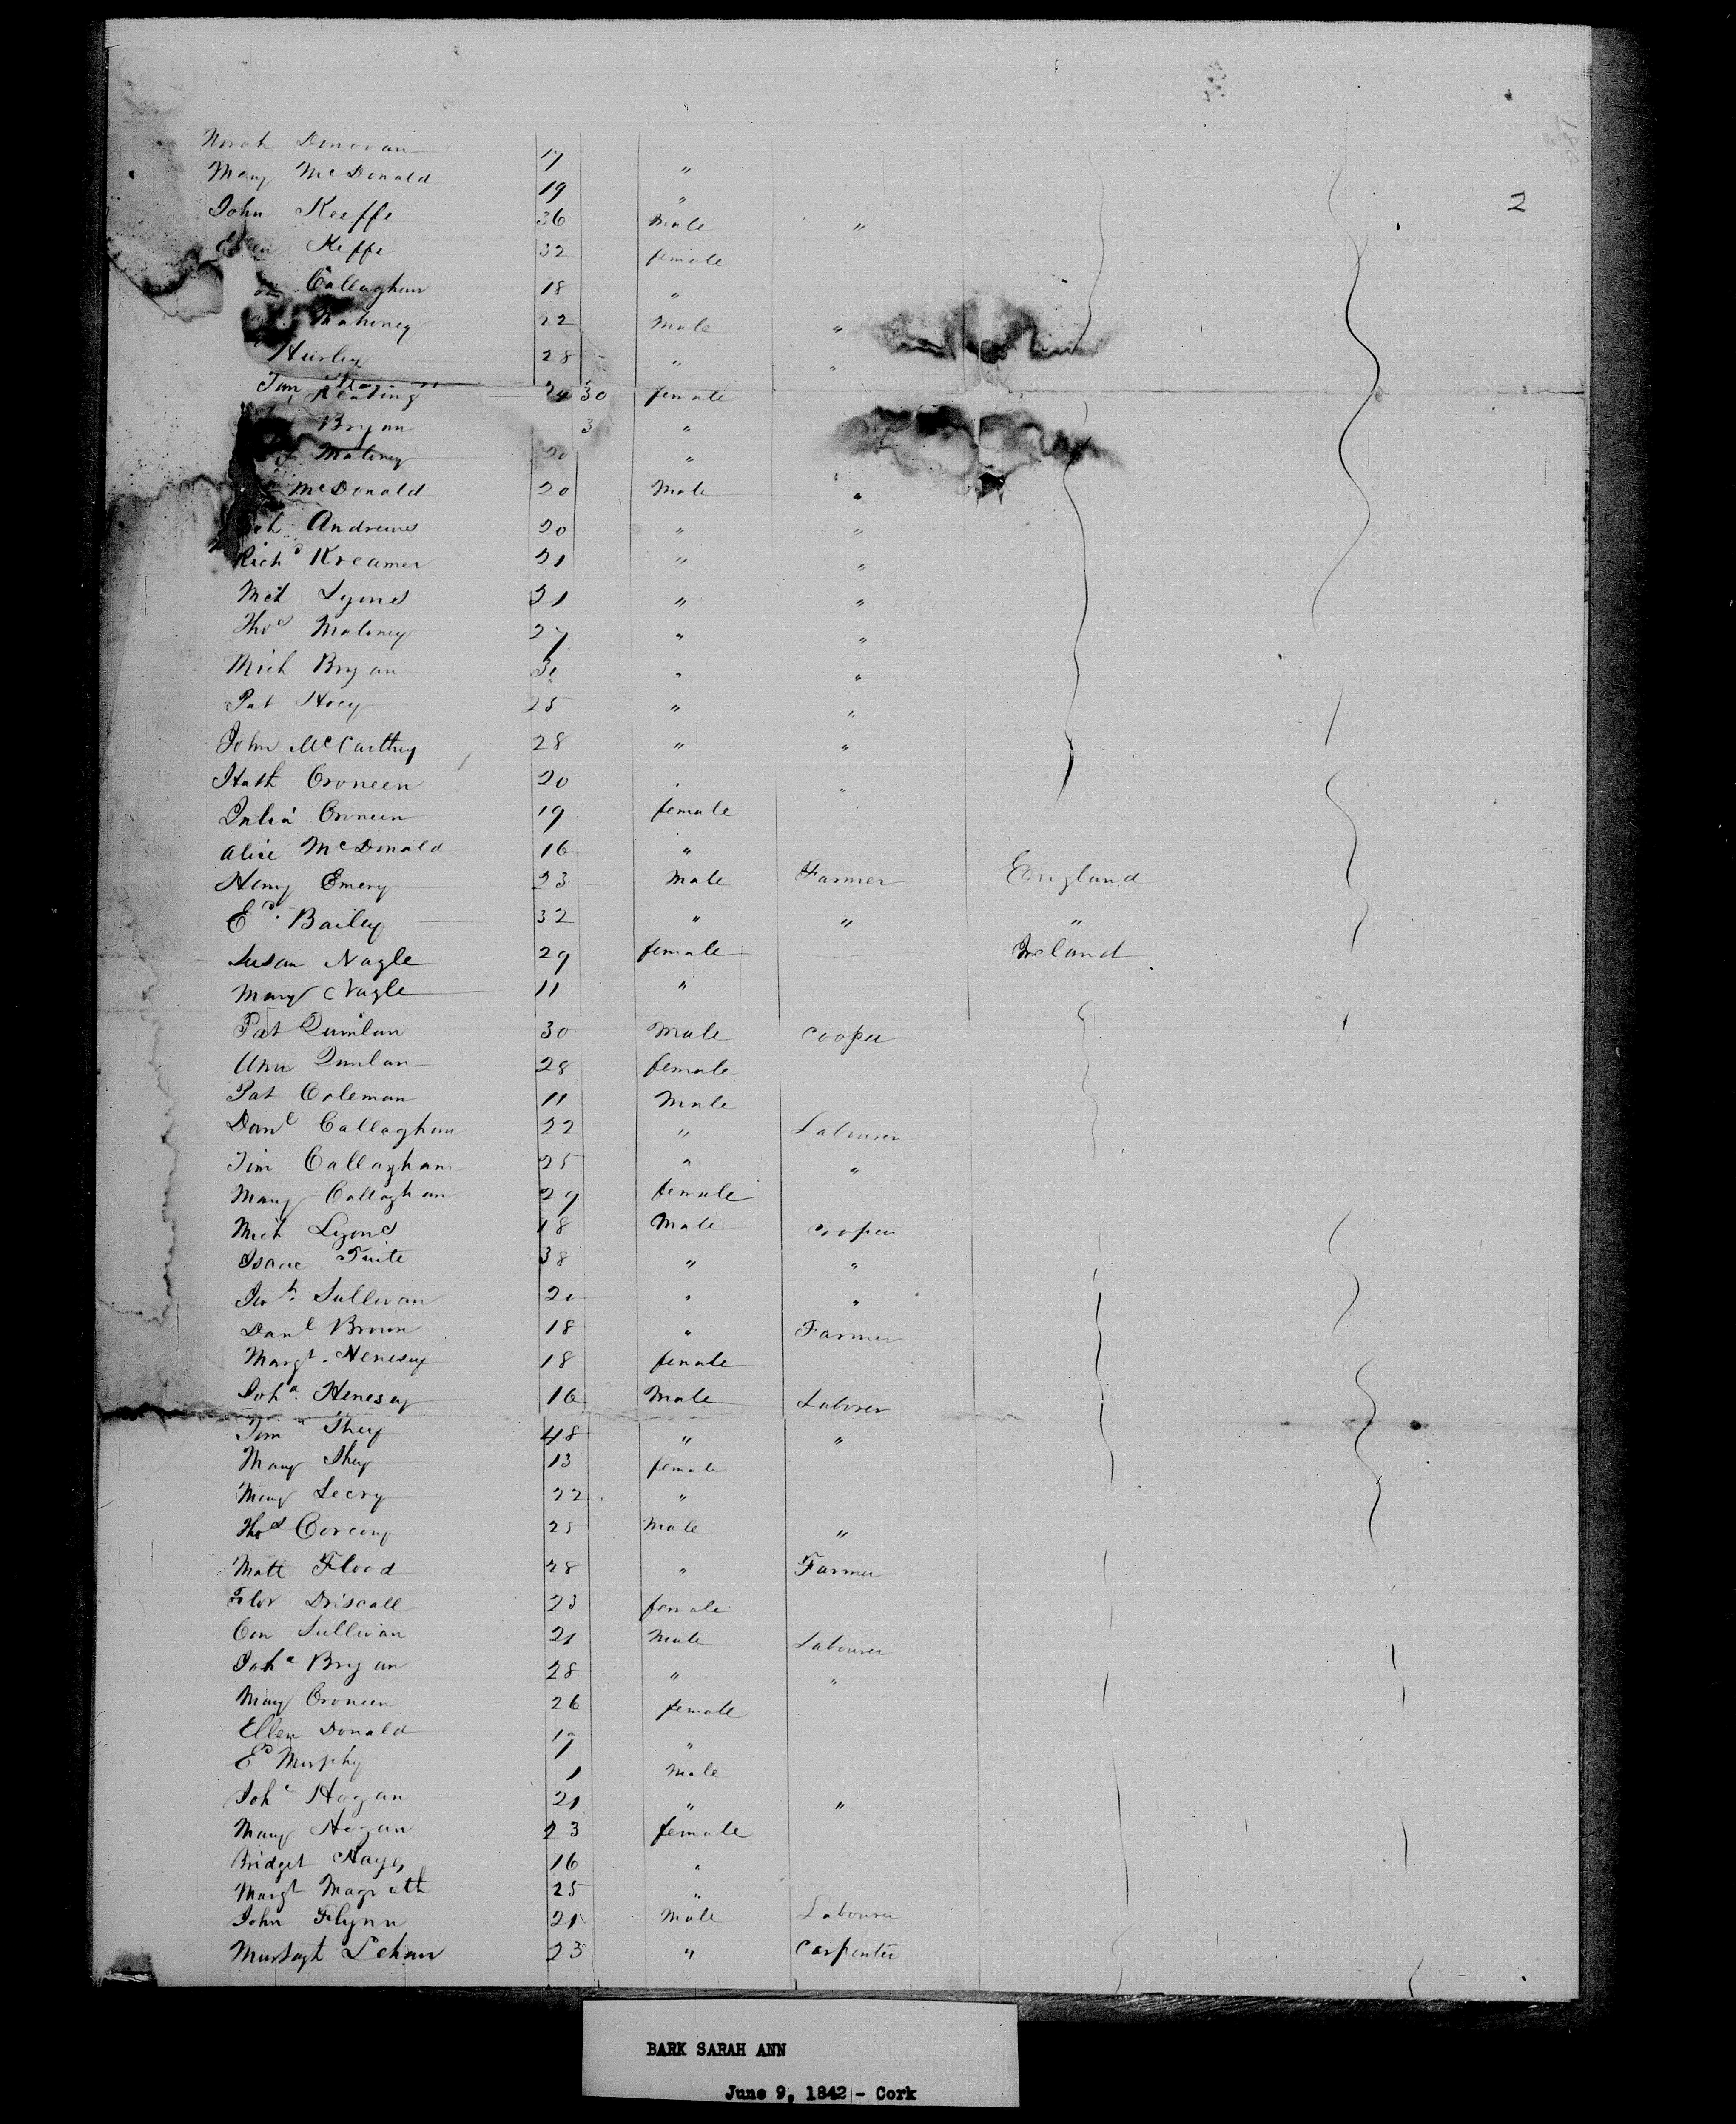 180
2
Norah Donovan 17 "
Mary McDonald 19 "
John Keeffe 36 Male "
Ellen Keffe 32 female
Callaghan 18 "
Mahoney 22 Male "
Hurley 28 " "
Keating 30 female
Bryan 3 "
Maloney 20 "
McDonald 20 Male "
Andrews 20 " "
Richd Kreamer 21 " "
Mich Lyons 21 " "
Thos Maloney 27 " "
Mich Bryan " "
Pat Hoey 25 " "
John McCarthy 28 " "
Croneen 20 " "
Julia Croneen 19 female
Alice McDonald 16 "
Henry Emery 23 Male Farmer England
Ed. Bailey 32 " " "
Susan Nagle 29 female Ireland
Mary Nagle 11 "
Pat Quinlan 30 Male Cooper
Ann Quinlan 28 female
Pat Coleman 11 Male
Danl Callaghan 22 " Labourer
Tim Callaghan 25 " "
Mary Callaghan 29 female
Mich Lyons 18 Male Cooper
Isaac Tuite 38 " "
Sullivan 20 " "
Danl Brown 18 " Farmer
Margt. Henesey 18 female
Joha. Henesey 16 Male Laborer
Tim Shey 48 " "
Mary Shey 13 female
Mary Leery 22 "
Thos 25 Male "
Matt Flood 28 " Farmer
Flor Driscall 23 female
Con Sullivan 21 Male Labourer
Bryan 28 " "
Mary Croneen 26 female
Ellen Donald 19 "
Ed Murphy 1 Male
Hogan 21 " "
Mary Hogan 23 female
Bridget Hayes 16 "
Margt Magrath 25 "
John Flynn 21 Male Labourer
Murtagh Lehan 23 " Carpenter
BARK SARAH ANN
June 9, 1842 - Cork